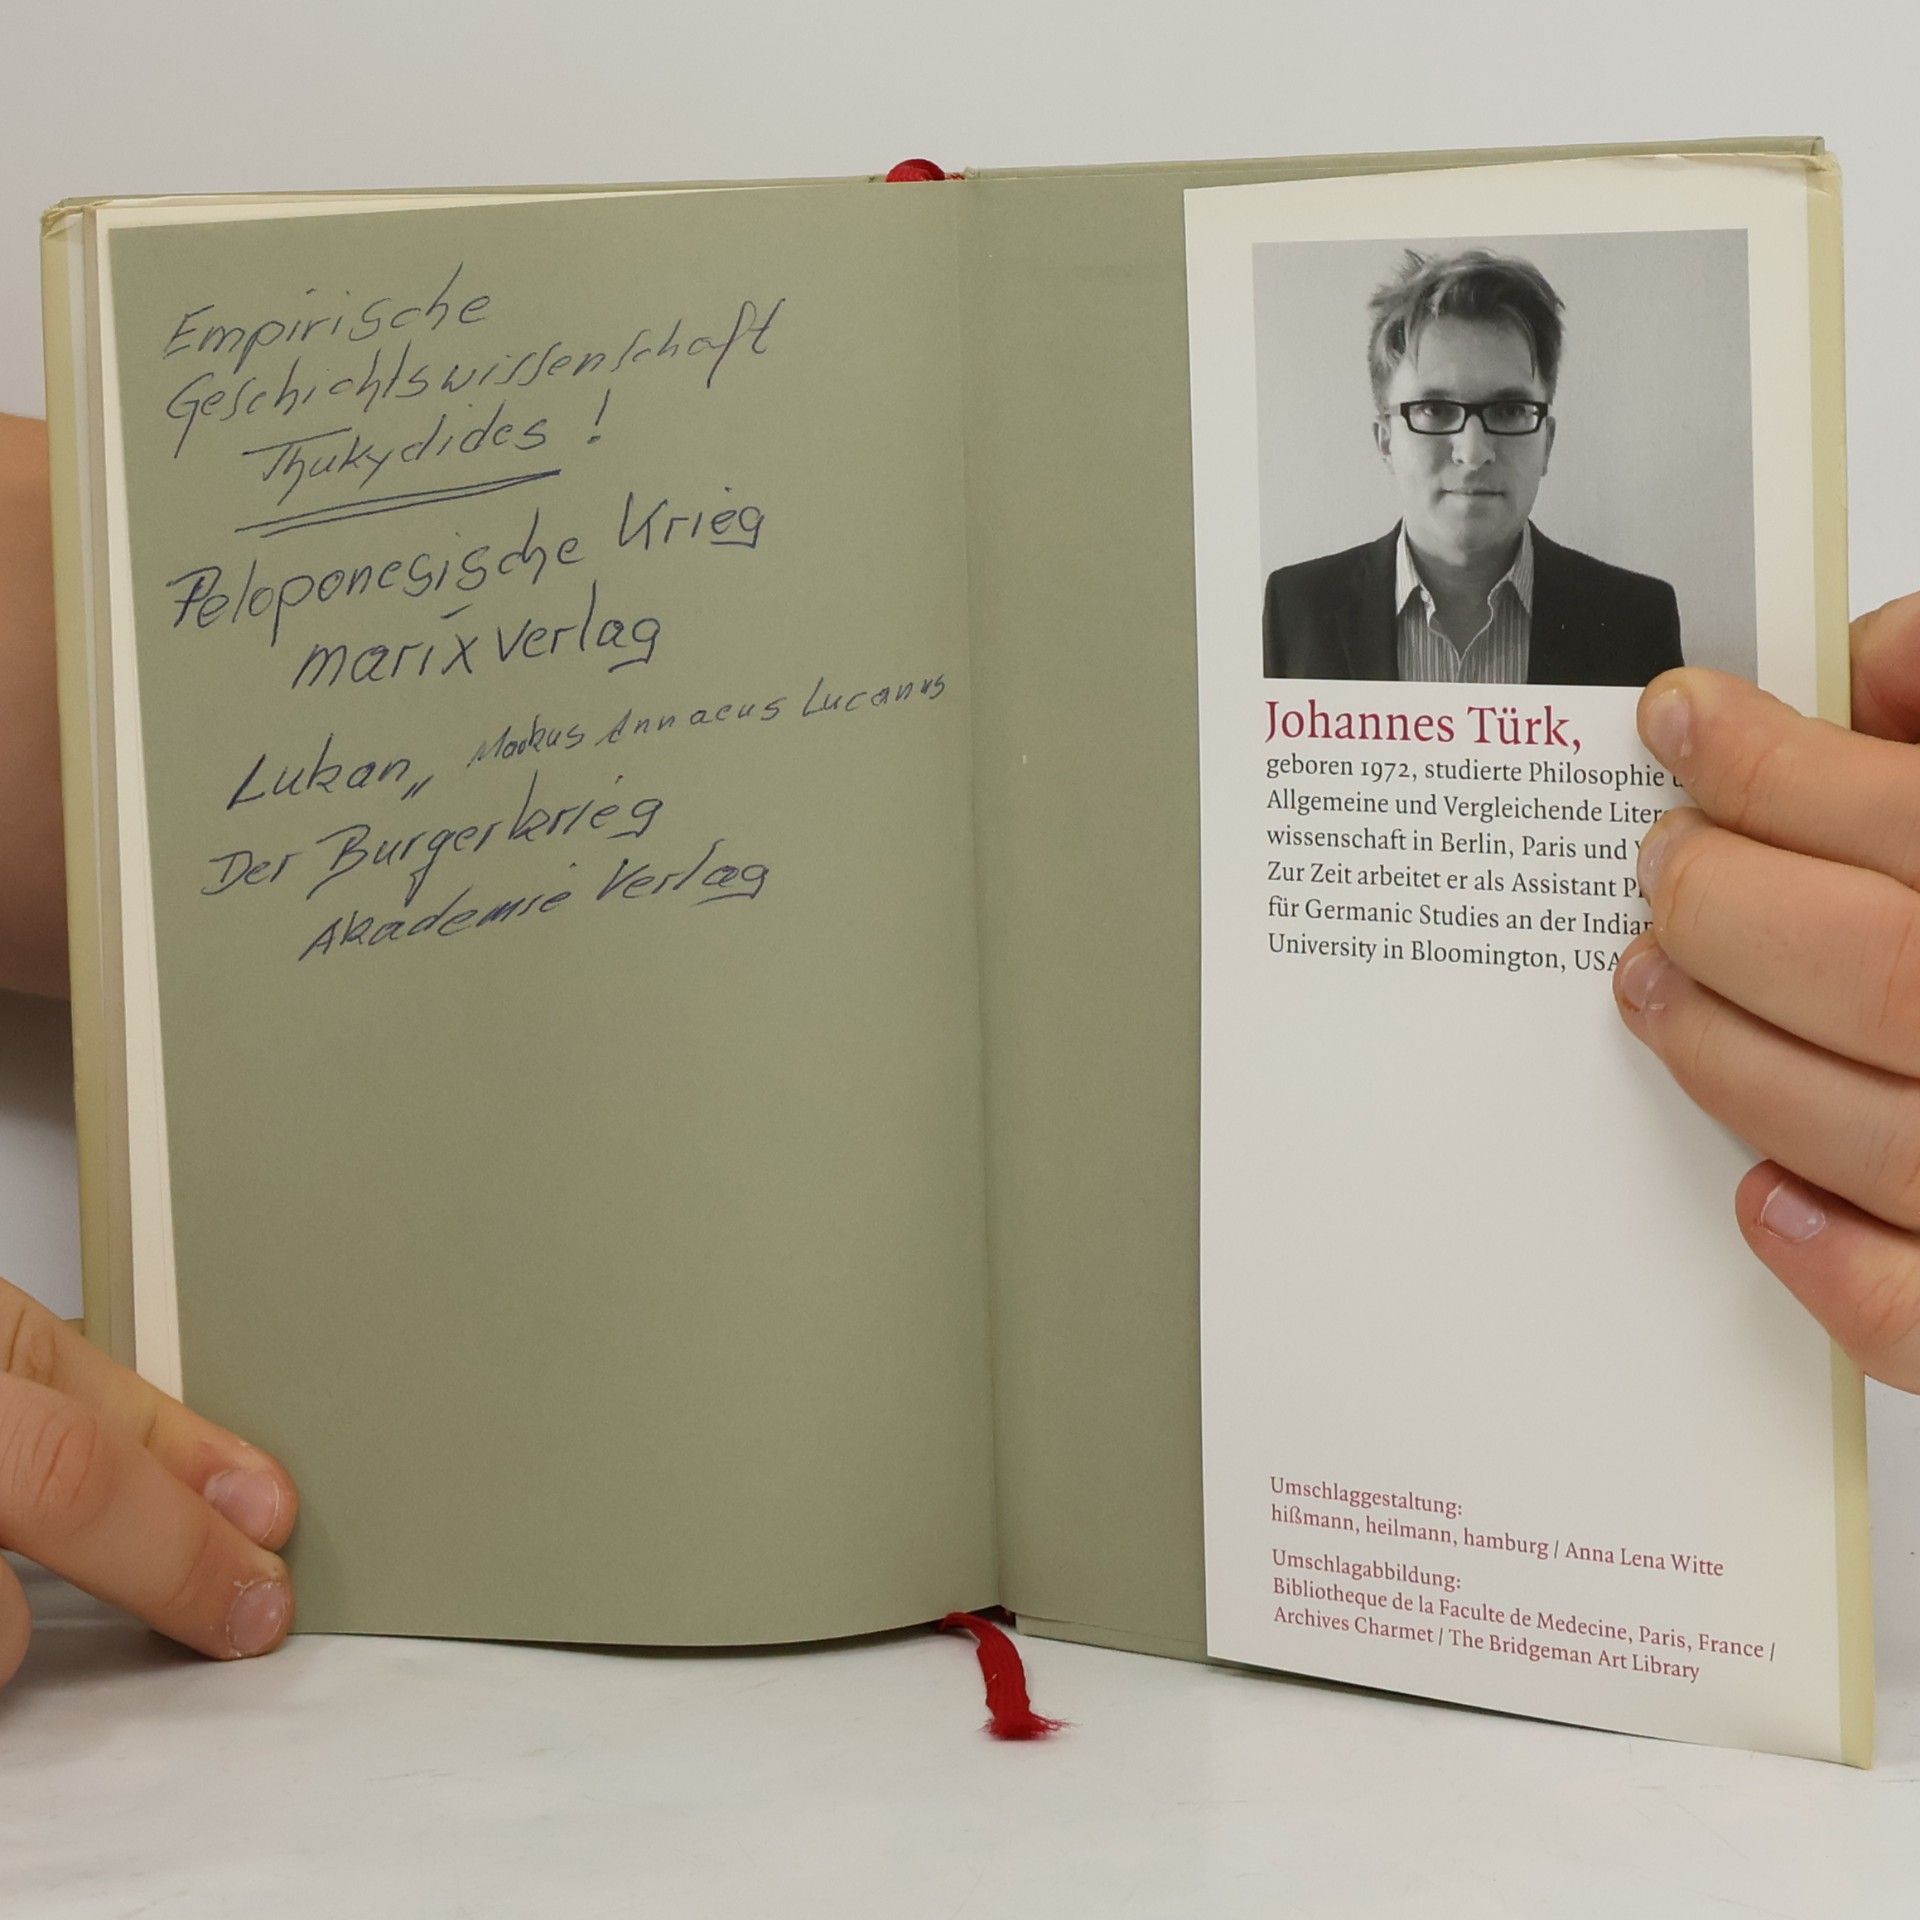 Empirische
Geschichtswissenschaft
Thukydides !
Peloponesische Krieg
marix verlag
Lukan,, Markus Annaeus Lucanus
Der Burgerkrieg
Akademie Verlag
Johannes Türk,
geboren 1972, studierte Philosophie
Allgemeine und Vergleichende
wissenschaft in Berlin, Paris und
Zur Zeit arbeitet er als Assistant
für Germanic Studies an der
University in Bloomington, USA
Umschlaggestaltung:
hißmann, heilmann, hamburg / Anna Lena Witte
Umschlagabbildung:
Bibliotheque de la Faculte de Medecine, Paris, France /
Archives Charmet / The Bridgeman Art Library